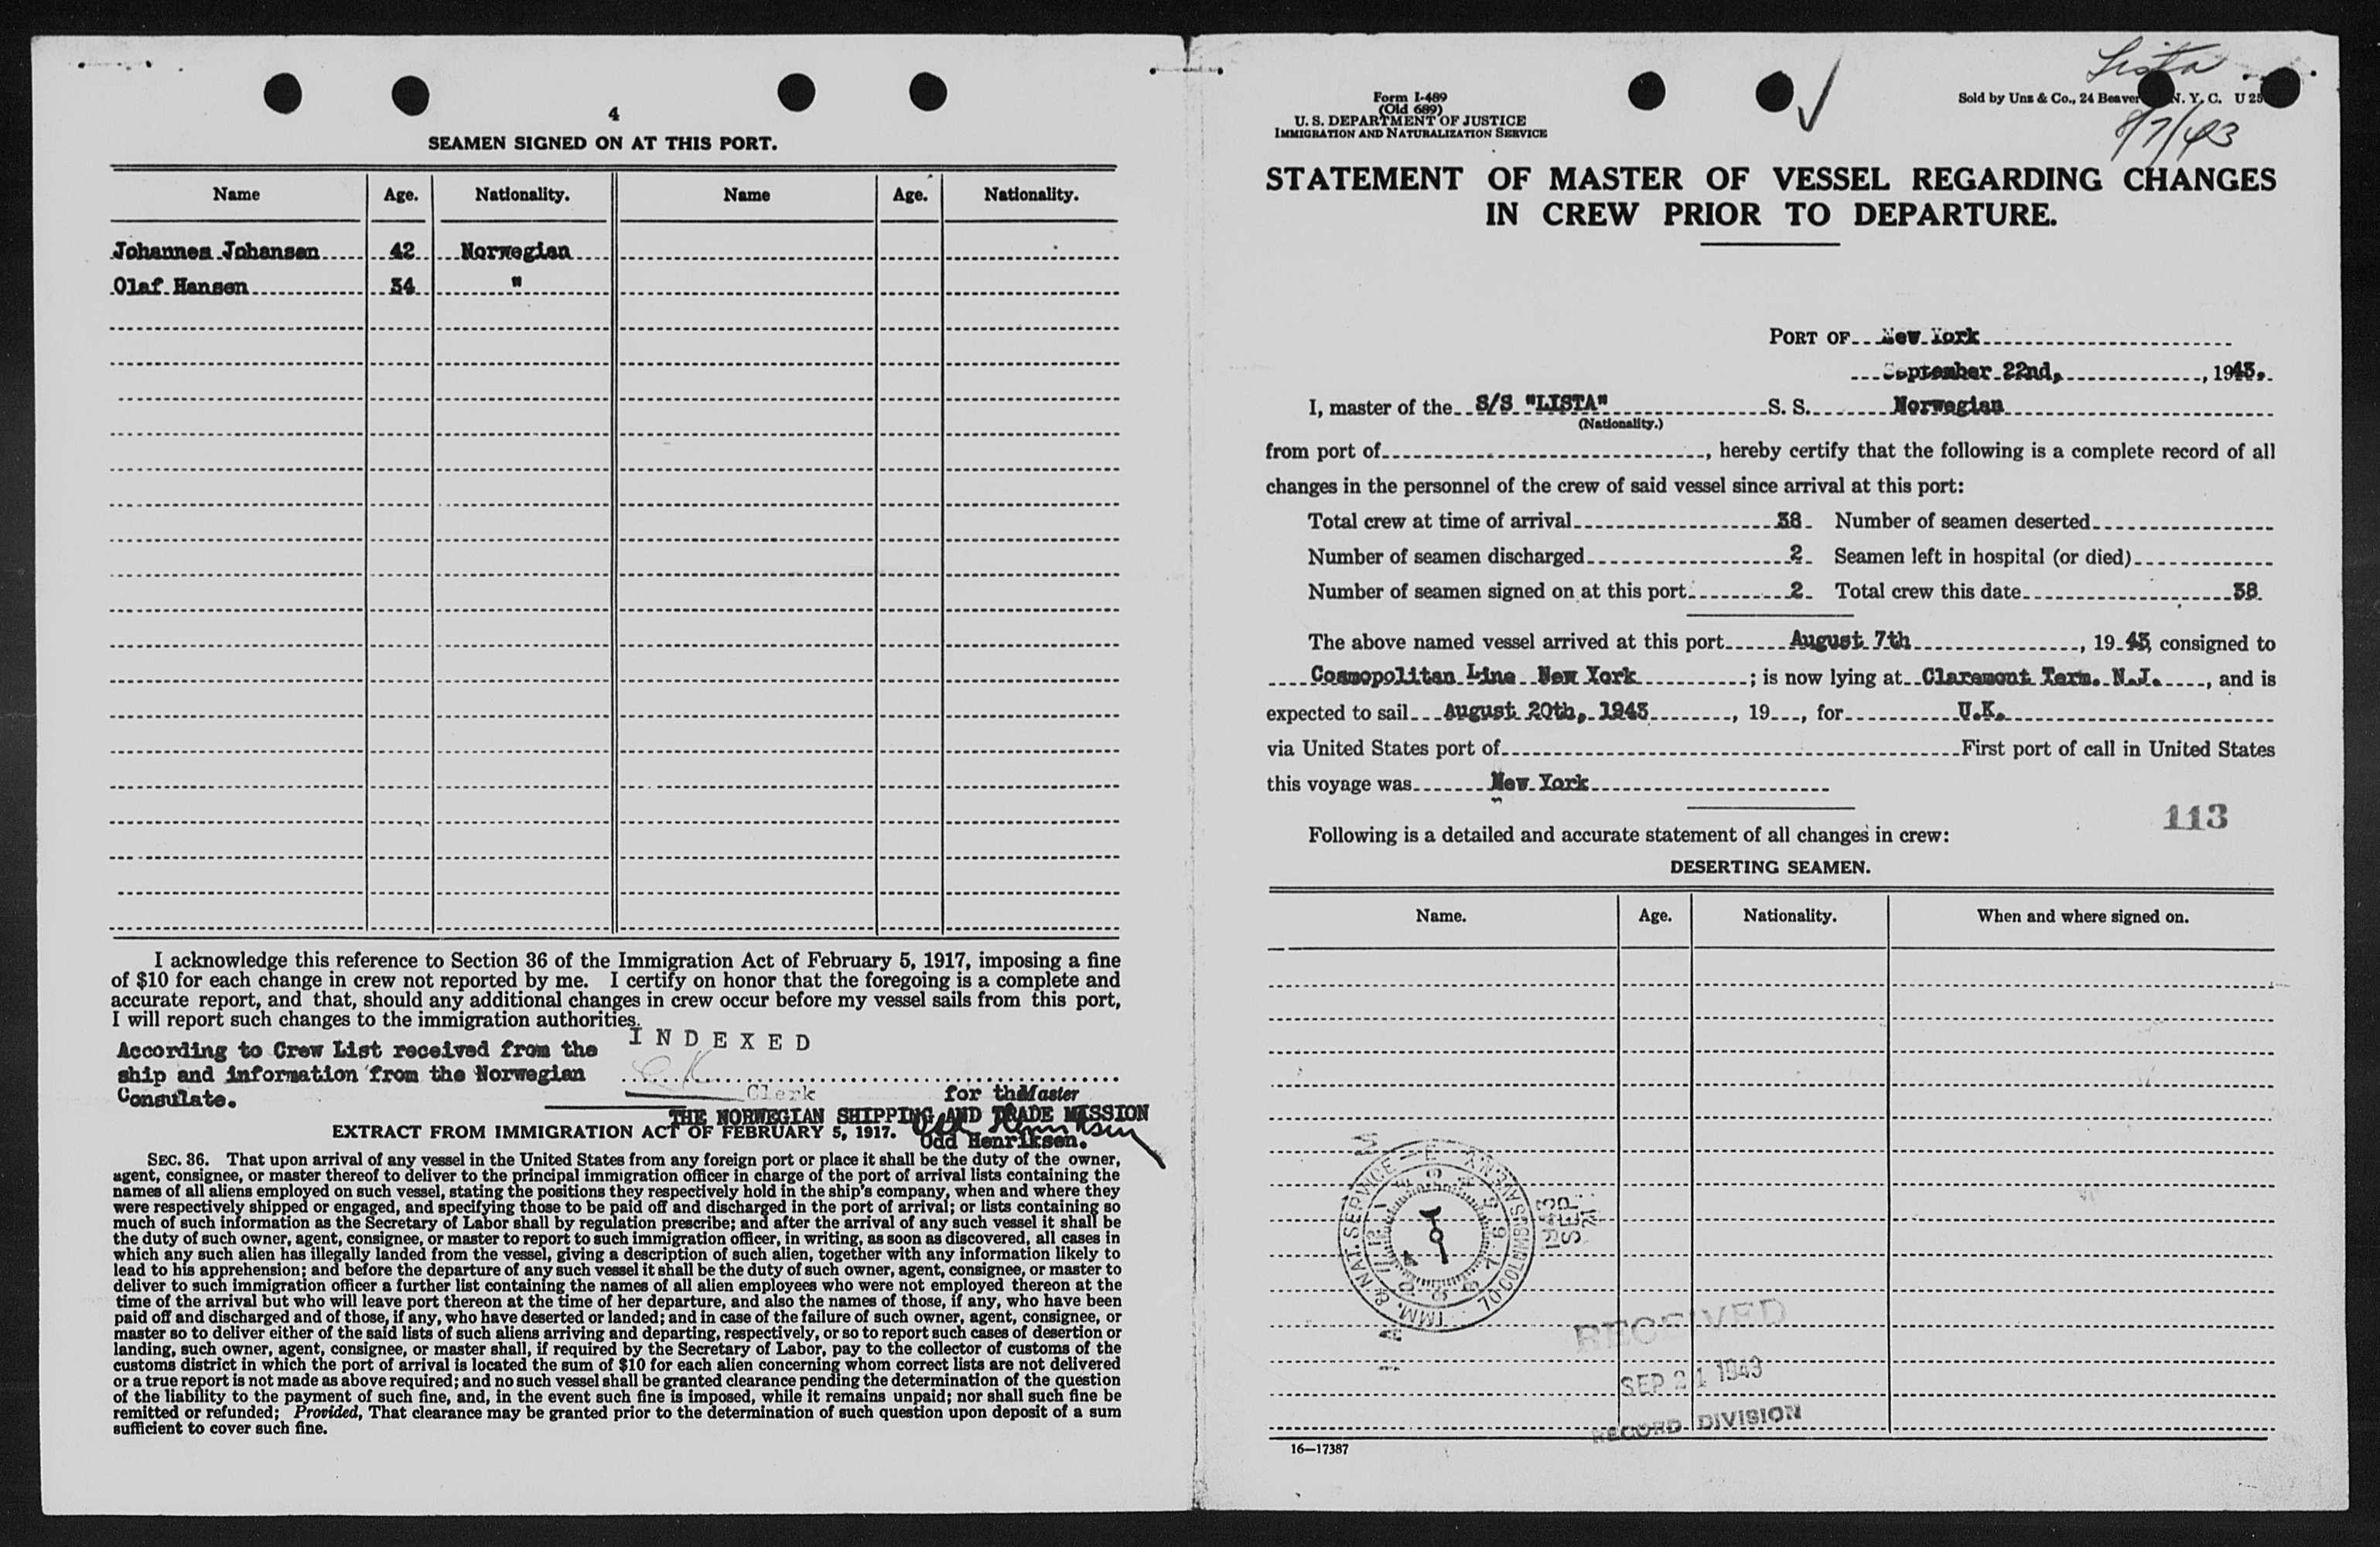 4
SEAMEN SIGNED ON AT THIS PORT.
Name Age. Nationality. Name Age. Nationality.
Johannes Johansen 42 Norwegian
Olaf Hansen 34 "
I acknowledge this reference to Section 36 of the Immigration Act of February 5, 1917, imposing a fine
of $10 for each change in crew not reported by me. I certify on honor that the foregoing is a complete and
accurate report, and that, should any additional changes in crew occur before my vessel sails from this port,
I will report such changes to the immigration authorities.
INDEXED
According to Crew List received from the
ship and information from the Norwegian
Consulate.
Clerk
for the Master
THE NORWEGIAN SHIPPING AND TRADE MISSION
EXTRACT FROM IMMIGRATION ACT OF FEBRUARY 5, 1917.
Odd Henriksen
Odd Henriksen.
SEC. 36. That upon arrival of any vessel in the United States from any foreign port or place it shall be the duty of the owner,
agent, consignee, or master thereof to deliver to the principal immigration officer in charge of the port of arrival lists containing the
names of all aliens employed on such vessel, stating the positions they respectively hold in the ship's company, when and where they
were respectively shipped or engaged, and specifying those to be paid off and discharged in the port of arrival; or lists containing so
much of such information as the Secretary of Labor shall by regulation prescribe; and after the arrival of any such vessel it shall be
the duty of such owner, agent, consignee, or master to report to such immigration officer, in writing, as soon as discovered, all cases in
which any such alien has illegally landed from the vessel, giving a description of such alien, together with any information likely to
lead to his apprehension; and before the departure of any such vessel it shall be the duty of such owner, agent, consignee, or master to
deliver to such immigration officer a further list containing the names of all alien employees who were not employed thereon at the
time of the arrival but who will leave port thereon at the time of her departure, and also the names of those, if any, who have been
paid off and discharged and of those, if any, who have deserted or landed; and in case of the failure of such owner, agent, consignee, or
master so to deliver either of the said lists of such aliens arriving and departing, respectively, or so to report such cases of desertion or
landing, such owner, agent, consignee, or master shall, if required by the Secretary of Labor, pay to the collector of customs of the
customs district in which the port of arrival is located the sum of $10 for each alien concerning whom correct lists are not delivered
or a true report is not made as above required; and no such vessel shall be granted clearance pending the determination of the question
of the liability to the payment of such fine, and, in the event such fine is imposed, while it remains unpaid; nor shall such fine be
remitted or refunded; Provided, That clearance may be granted prior to the determination of such question upon deposit of a sum
sufficient to cover such fine.
Lista
8/7/43
Form I-489
(Old 689)
U. S. DEPARTMENT OF JUSTICE
IMMIGRATION AND NATURALIZATION SERVICE
Sold by Unz & Co., 24 Beaver N. Y. C. U 25
STATEMENT OF MASTER OF VESSEL REGARDING CHANGES
IN CREW PRIOR TO DEPARTURE.
PORT OF New York
September 22nd, 1943.
I, master of the S/S "LISTA" S. S. Norwegian
(Nationality.)
from port of , hereby certify that the following is a complete record of all
changes in the personnel of the crew of said vessel since arrival at this port:
Total crew at time of arrival 38 Number of seamen deserted
Number of seamen discharged 2 Seamen left in hospital (or died)
Number of seamen signed on at this port 2 Total crew this date 38
The above named vessel arrived at this port August 7th , 19 43, consigned to
Cosmopolitan Line New York ; is now lying at Claremont Term. N.J. , and is
expected to sail August 20th, 1943 , 19 , for U.K.
via United States port of First port of call in United States
this voyage was New York
113
Following is a detailed and accurate statement of all changes in crew:
DESERTING SEAMEN.
Name. Age. Nationality. When and where signed on.
IMM. & NAT. SERVICE
70 COLUMBUS AVE. N.Y.
1943
SEP
21
RECEIVED
SEP 21 1943
RECORD DIVISION
16—17387